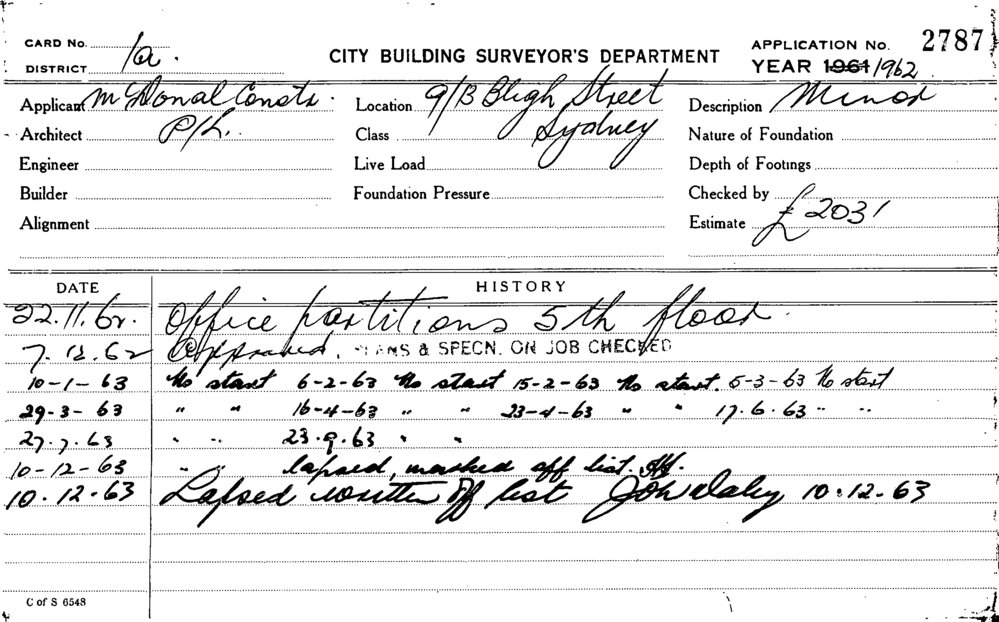 CARD No. 1a. CITY BUILDING SURVEYOR'S DEPARTMENT APPLICATION No. 2787
DISTRICT YEAR 1961/1962
Applicant McDonal Constr. Location 9/13 Bligh Street Description Minor
Architect P/L. Class Sydney Nature of Foundation
Engineer Live Load Depth of Footings
Builder Foundation Pressure Checked by
Alignment Estimate £2031
DATE HISTORY
22.11.62. Office partitions 5th floor.
7.12.62 Approved. PLANS & SPECN. ON JOB CHECKED
10-1-63 No start 6-2-63 No start 15-2-63 No start. 5-3-63 No start
29-3-63 " " 16-4-63 " " 23-4-63 " " 17.6.63 " "
27.7.63 " " 23.9.63 " "
10-12-63 " " lapsed, marked off list.
10.12.63 Lapsed written off list 10.12.63
C of S 6548